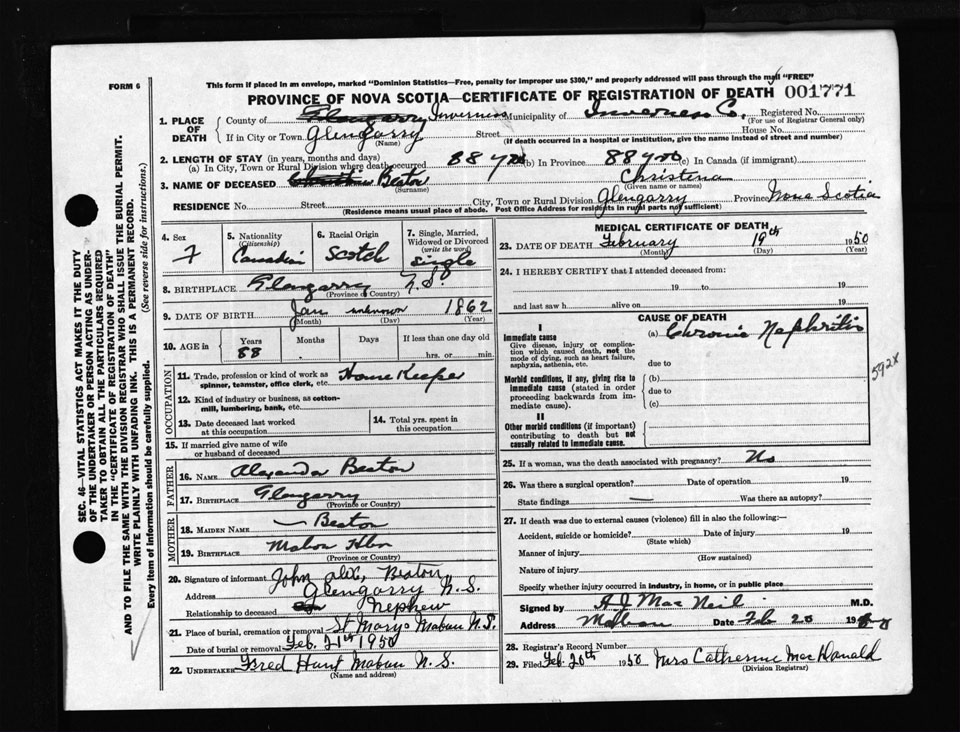 FORM 6
This form if placed in an envelope, marked "Dominion Statistics—Free, penalty for improper use $300," and properly addressed will pass through the mail "FREE"
PROVINCE OF NOVA SCOTIA—CERTIFICATE OF REGISTRATION OF DEATH 001771
1. PLACE OF DEATH County of Glengarry Inverness Municipality of Inverness Co. Registered No.
(For use of Registrar General only)
If in City or Town Glengarry Street House No.
(Name) (If death occurred in a hospital or institution, give the name instead of street and number)
2. LENGTH OF STAY (in years, months and days)
(a) In City, Town or Rural Division where death occurred 88 yrs (b) In Province 88 yrs (c) In Canada (if immigrant)
3. NAME OF DECEASED Beaton Christena
(Surname) (Given name or names)
RESIDENCE No. Street City, Town or Rural Division Glengarry Province Nova Scotia
(Residence means usual place of abode. Post Office Address for residents in rural parts not sufficient)
4. Sex F
5. Nationality (Citizenship) Canadian
6. Racial Origin Scotch
7. Single, Married, Widowed or Divorced (write the word) Single
8. BIRTHPLACE Glengarry N.S.
(Province or Country)
9. DATE OF BIRTH Jan unknown 1862
(Month) (Day) (Year)
10. AGE in Years Months Days If less than one day old
88 hrs. or min.
OCCUPATION
11. Trade, profession or kind of work as spinner, teamster, office clerk, etc. House Keeper
12. Kind of industry or business, as cotton-mill, lumbering, bank, etc.
13. Date deceased last worked at this occupation
14. Total yrs. spent in this occupation
15. If married give name of wife or husband of deceased
FATHER
16. NAME Alexander Beaton
17. BIRTHPLACE Glengarry
(Province or Country)
MOTHER
18. MAIDEN NAME — Beaton
19. BIRTHPLACE Mabou Hbr
(Province or Country)
20. Signature of informant John Alex, Beaton
Address Glengarry N.S.
Relationship to deceased Nephew
21. Place of burial, cremation or removal St Marys Mabou N.S.
Date of burial or removal Feb. 21th 1950
22. UNDERTAKER Fred Hunt Mabou N.S.
(Name and address)
MEDICAL CERTIFICATE OF DEATH
23. DATE OF DEATH February 19th 1950
(Month) (Day) (Year)
24. I HEREBY CERTIFY that I attended deceased from:
19 to 19
and last saw h alive on 19
CAUSE OF DEATH
I
Immediate cause (a) Chronic Nephritis
Give disease, injury or complication which caused death, not the mode of dying, such as heart failure, asphyxia, asthenia, etc.
due to
592X
Morbid conditions, if any, giving rise to immediate cause (stated in order proceeding backwards from immediate cause).
(b)
due to
(c)
II
Other morbid conditions (if important) contributing to death but not causally related to immediate cause.
25. If a woman, was the death associated with pregnancy? No
26. Was there a surgical operation? Date of operation 19
State findings — Was there an autopsy?
27. If death was due to external causes (violence) fill in also the following:—
Accident, suicide or homicide? Date of injury 19
(State which)
Manner of injury
(How sustained)
Nature of injury
Specify whether injury occurred in industry, in home, or in public place
Signed by A J MacNeil M.D.
Address Mabou Date Feb 20 1950
28. Registrar's Record Number
29. Filed Feb. 20th 1950 Mrs Catherine MacDonald
(Division Registrar)
SEC. 46—VITAL STATISTICS ACT MAKES IT THE DUTY
OF THE UNDERTAKER OR PERSON ACTING AS UNDER-
TAKER TO OBTAIN ALL THE PARTICULARS REQUIRED
IN THE "CERTIFICATE OF REGISTRATION OF DEATH"
AND TO FILE THE SAME WITH THE DIVISION REGISTRAR WHO SHALL ISSUE THE BURIAL PERMIT.
WRITE PLAINLY WITH UNFADING INK. THIS IS A PERMANENT RECORD.
Every item of information should be carefully supplied. (See reverse side for instructions.)